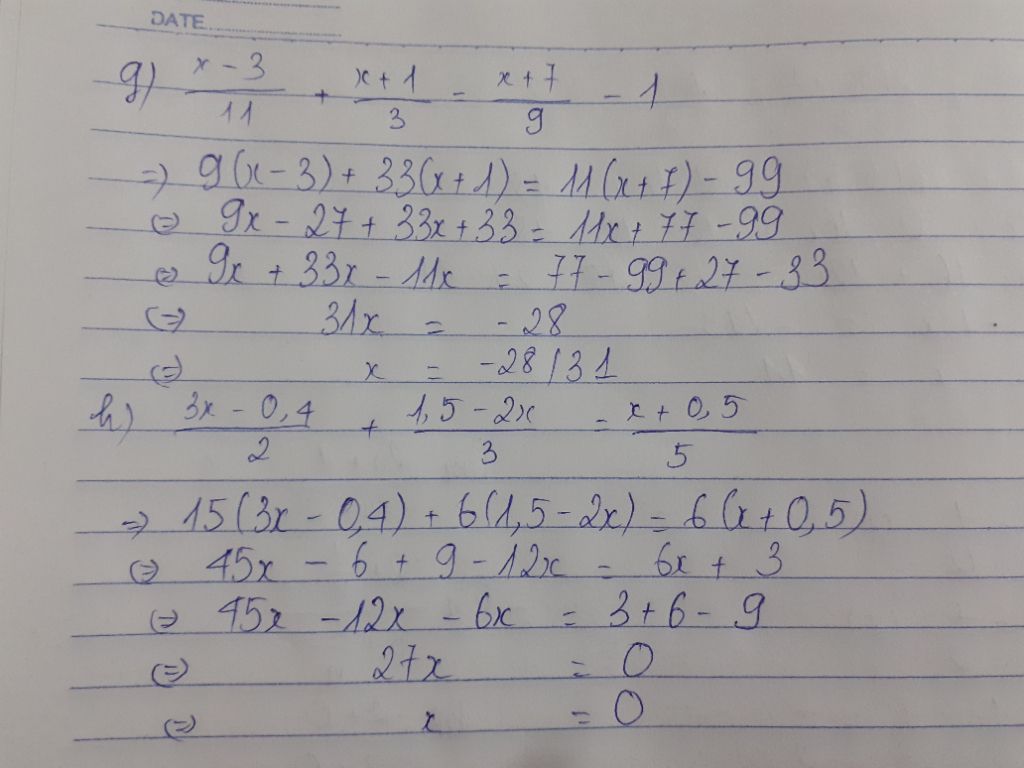 DATE
g) (x - 3)/11 + (x + 1)/3 = (x + 7)/9 - 1
=> 9(x - 3) + 33(x + 1) = 11(x + 7) - 99
<=> 9x - 27 + 33x + 33 = 11x + 77 - 99
<=> 9x + 33x - 11x = 77 - 99 + 27 - 33
<=> 31x = -28
<=> x = -28/31
h) (3x - 0,4)/2 + (1,5 - 2x)/3 = (x + 0,5)/5
=> 15(3x - 0,4) + 6(1,5 - 2x) = 6(x + 0,5)
<=> 45x - 6 + 9 - 12x = 6x + 3
<=> 45x - 12x - 6x = 3 + 6 - 9
<=> 27x = 0
<=> x = 0